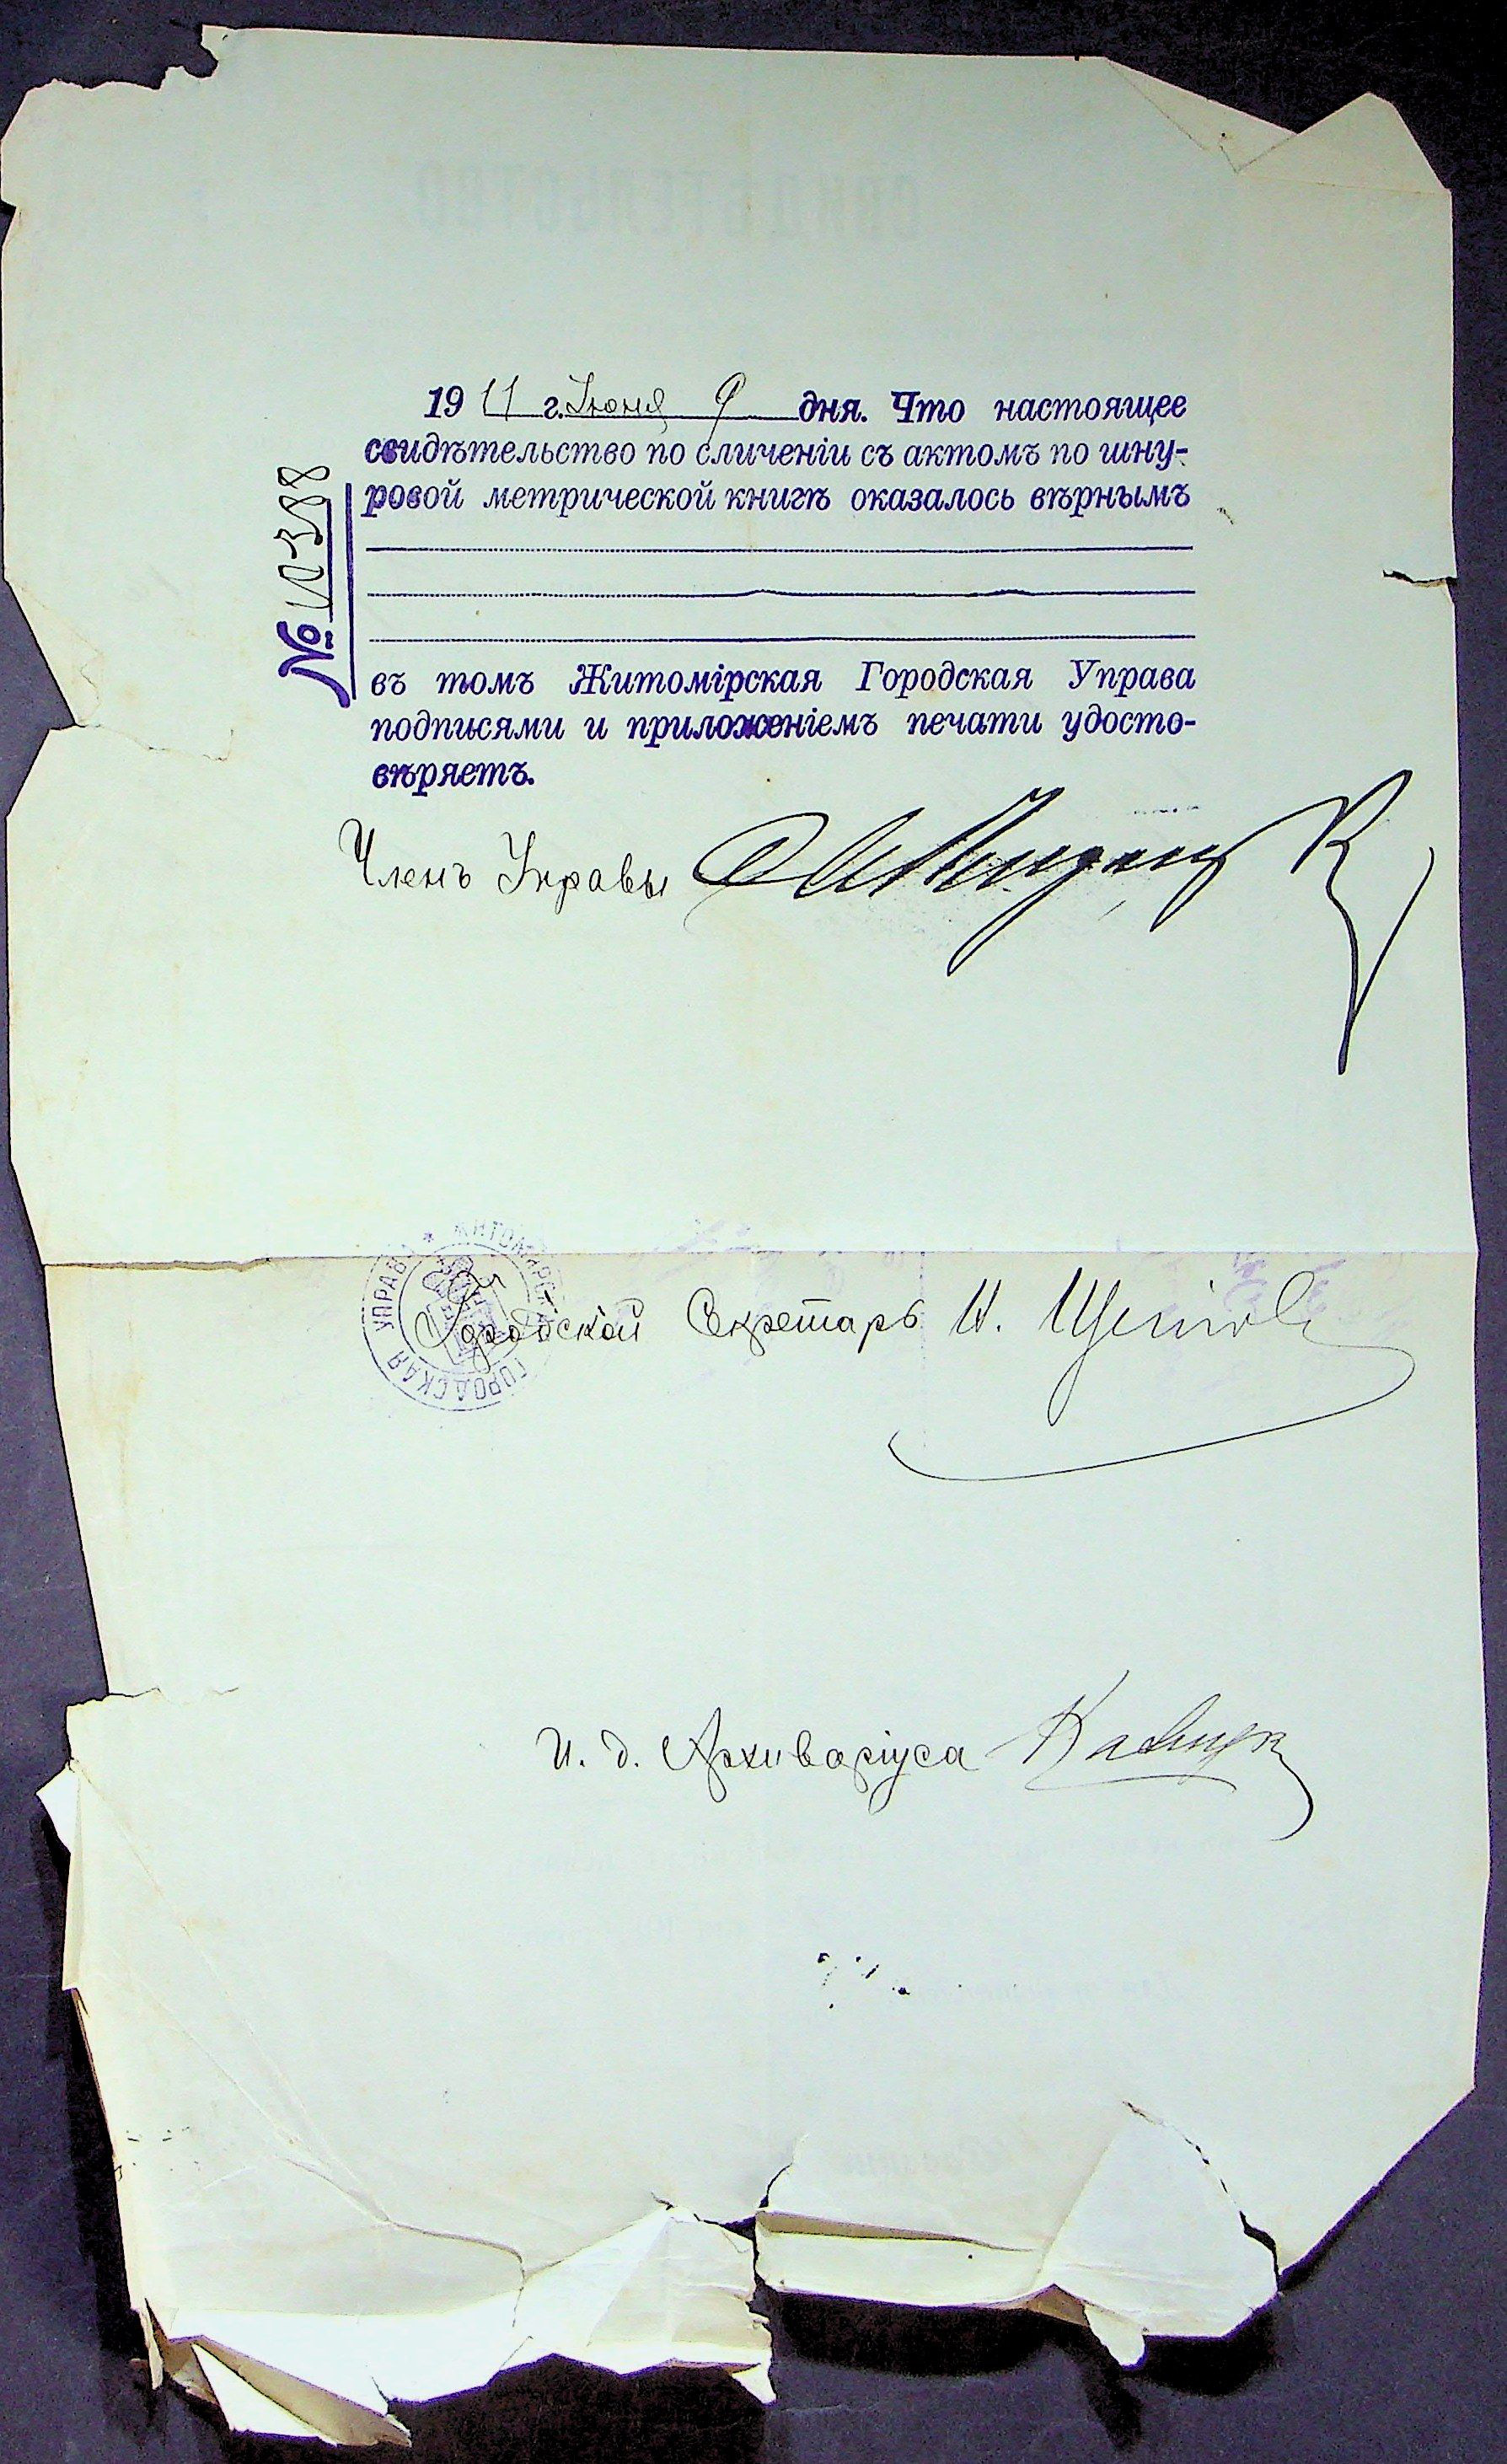 1911 г. Июня 9 дня. Что настоящее
свидѣтельство по сличеніи съ актомъ по шну-
ровой метрической книгѣ оказалось вѣрнымъ
№ 10388
въ томъ Житомірская Городская Управа
подписями и приложеніемъ печати удосто-
вѣряетъ.
Членъ Управы
ЖИТОМІРСКАЯ ГОРОДСКАЯ УПРАВА *
Городской Секретарь И.
И. д. Архиваріуса